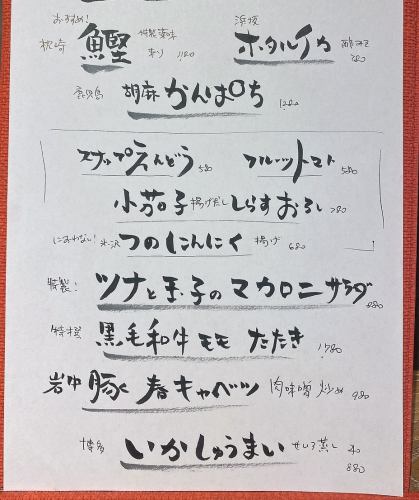 おすすめ! 浜坂
枕崎 鰹 特製薬味 辛り 1180 ホタルイカ 酢みそ 780
鹿児島 胡麻かんぱち 1280
スナップえんどう 580 フルーツトマト 580
小茄子 揚げだし しらすおろし 780
におわない! 米沢 つのにんにく 揚げ 680
特製! ツナと玉子のマカロニサラダ 880
特撰 黒毛和牛モモ たたき 1780
岩中豚と春キャベツ 肉味噌炒め 980
博多 いかしゅうまい せいろ蒸し 880